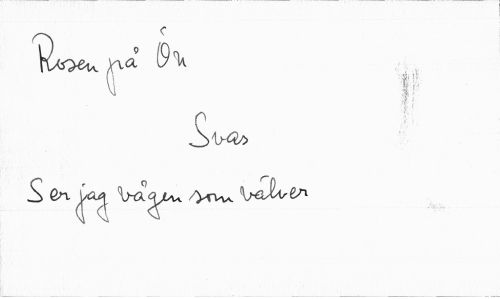 Rosen på Ön
Svas
Ser jag vågen som välver